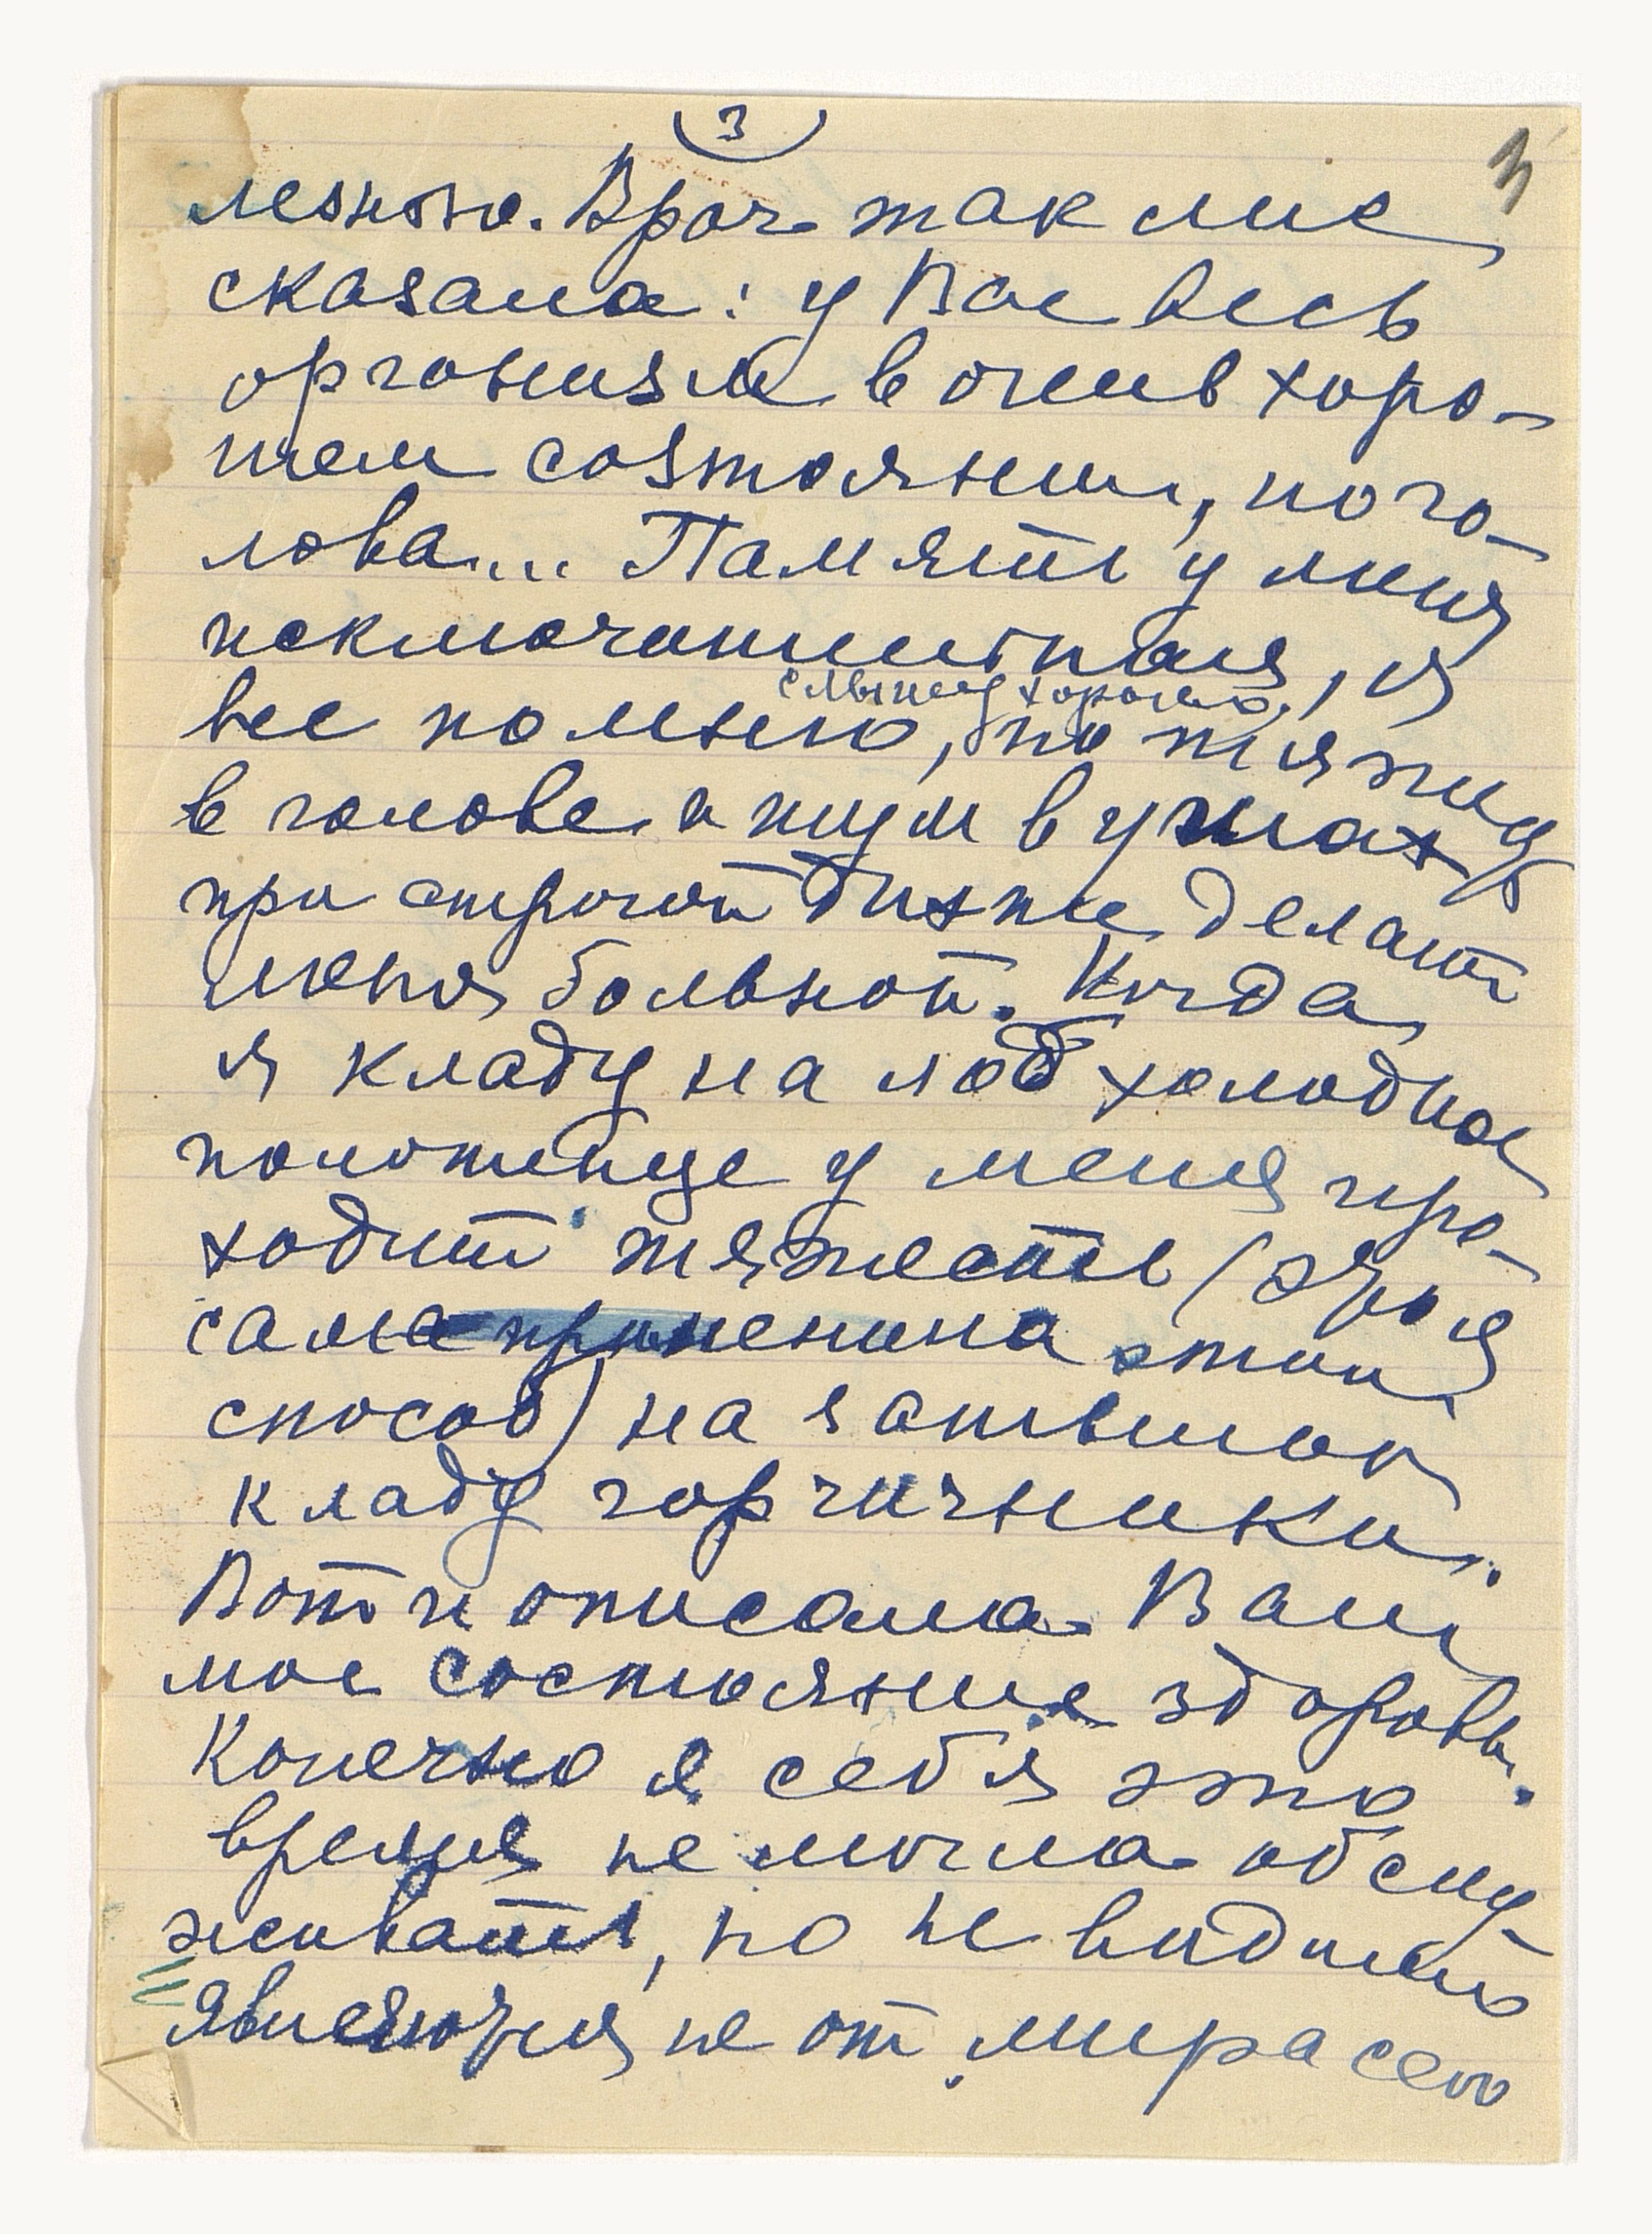 3
3
лезного. Врач так мне
сказала: у Вас весь
организм в очень хоро-
шем созтоянии, но го-
лова... Память у меня
исключительная, я
слышу хорошо,
все помню, но тяжид
в голове и шум в ушах
при строгой делает
меня больной. Когда
я кладу на лоб холодное
полотенце у меня про-
ходит тяжесть (это я
сама применила этот
способ) на затылок
кладу горчичники.
Вот и описала Вам
мое состояние здоровья.
Конечно я себя это
время не могла обслу-
живать, но не видимо
не от мира сего